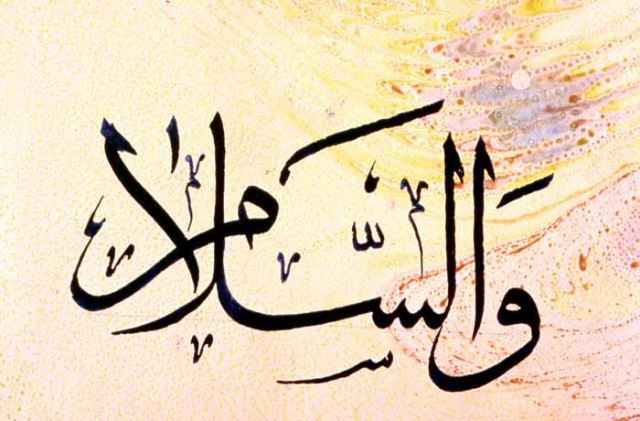 وَالسَّلام